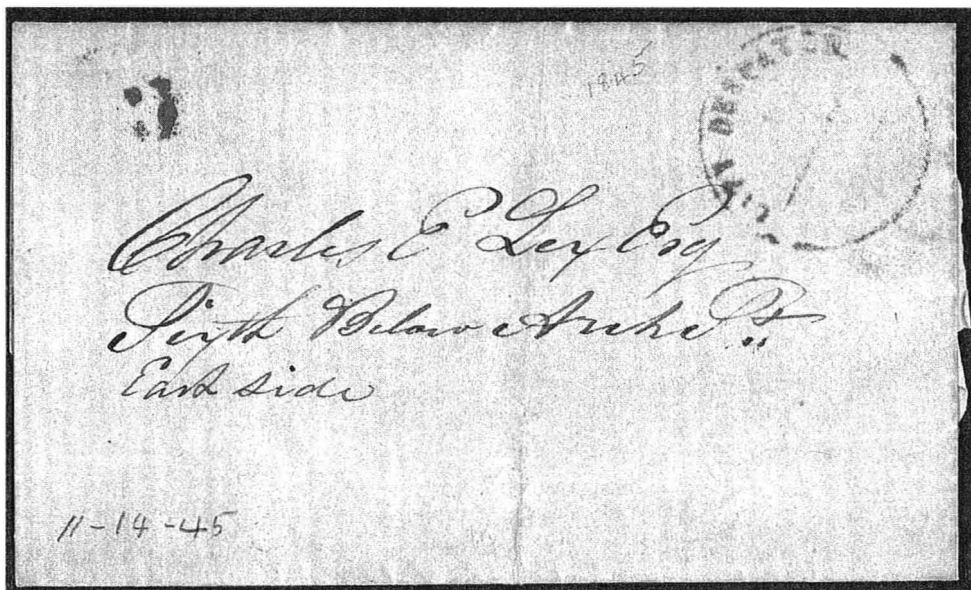 1845
CITY DESPATCH
Charles E Lex Esq
Sixth Below Arch St
East side
11-14-45